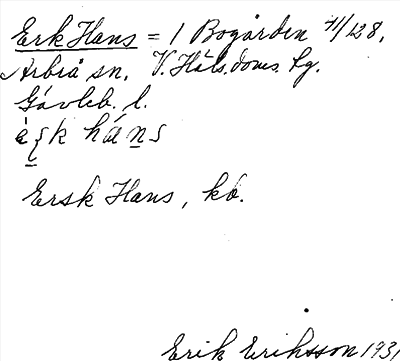 Erk Hans = 1 Bogården 11/128,
Arbrå sn, V. Häls. doms. hg.
Gävleb. l.
hans
Ersk Hans, kb.
Erik Eriksson 1931